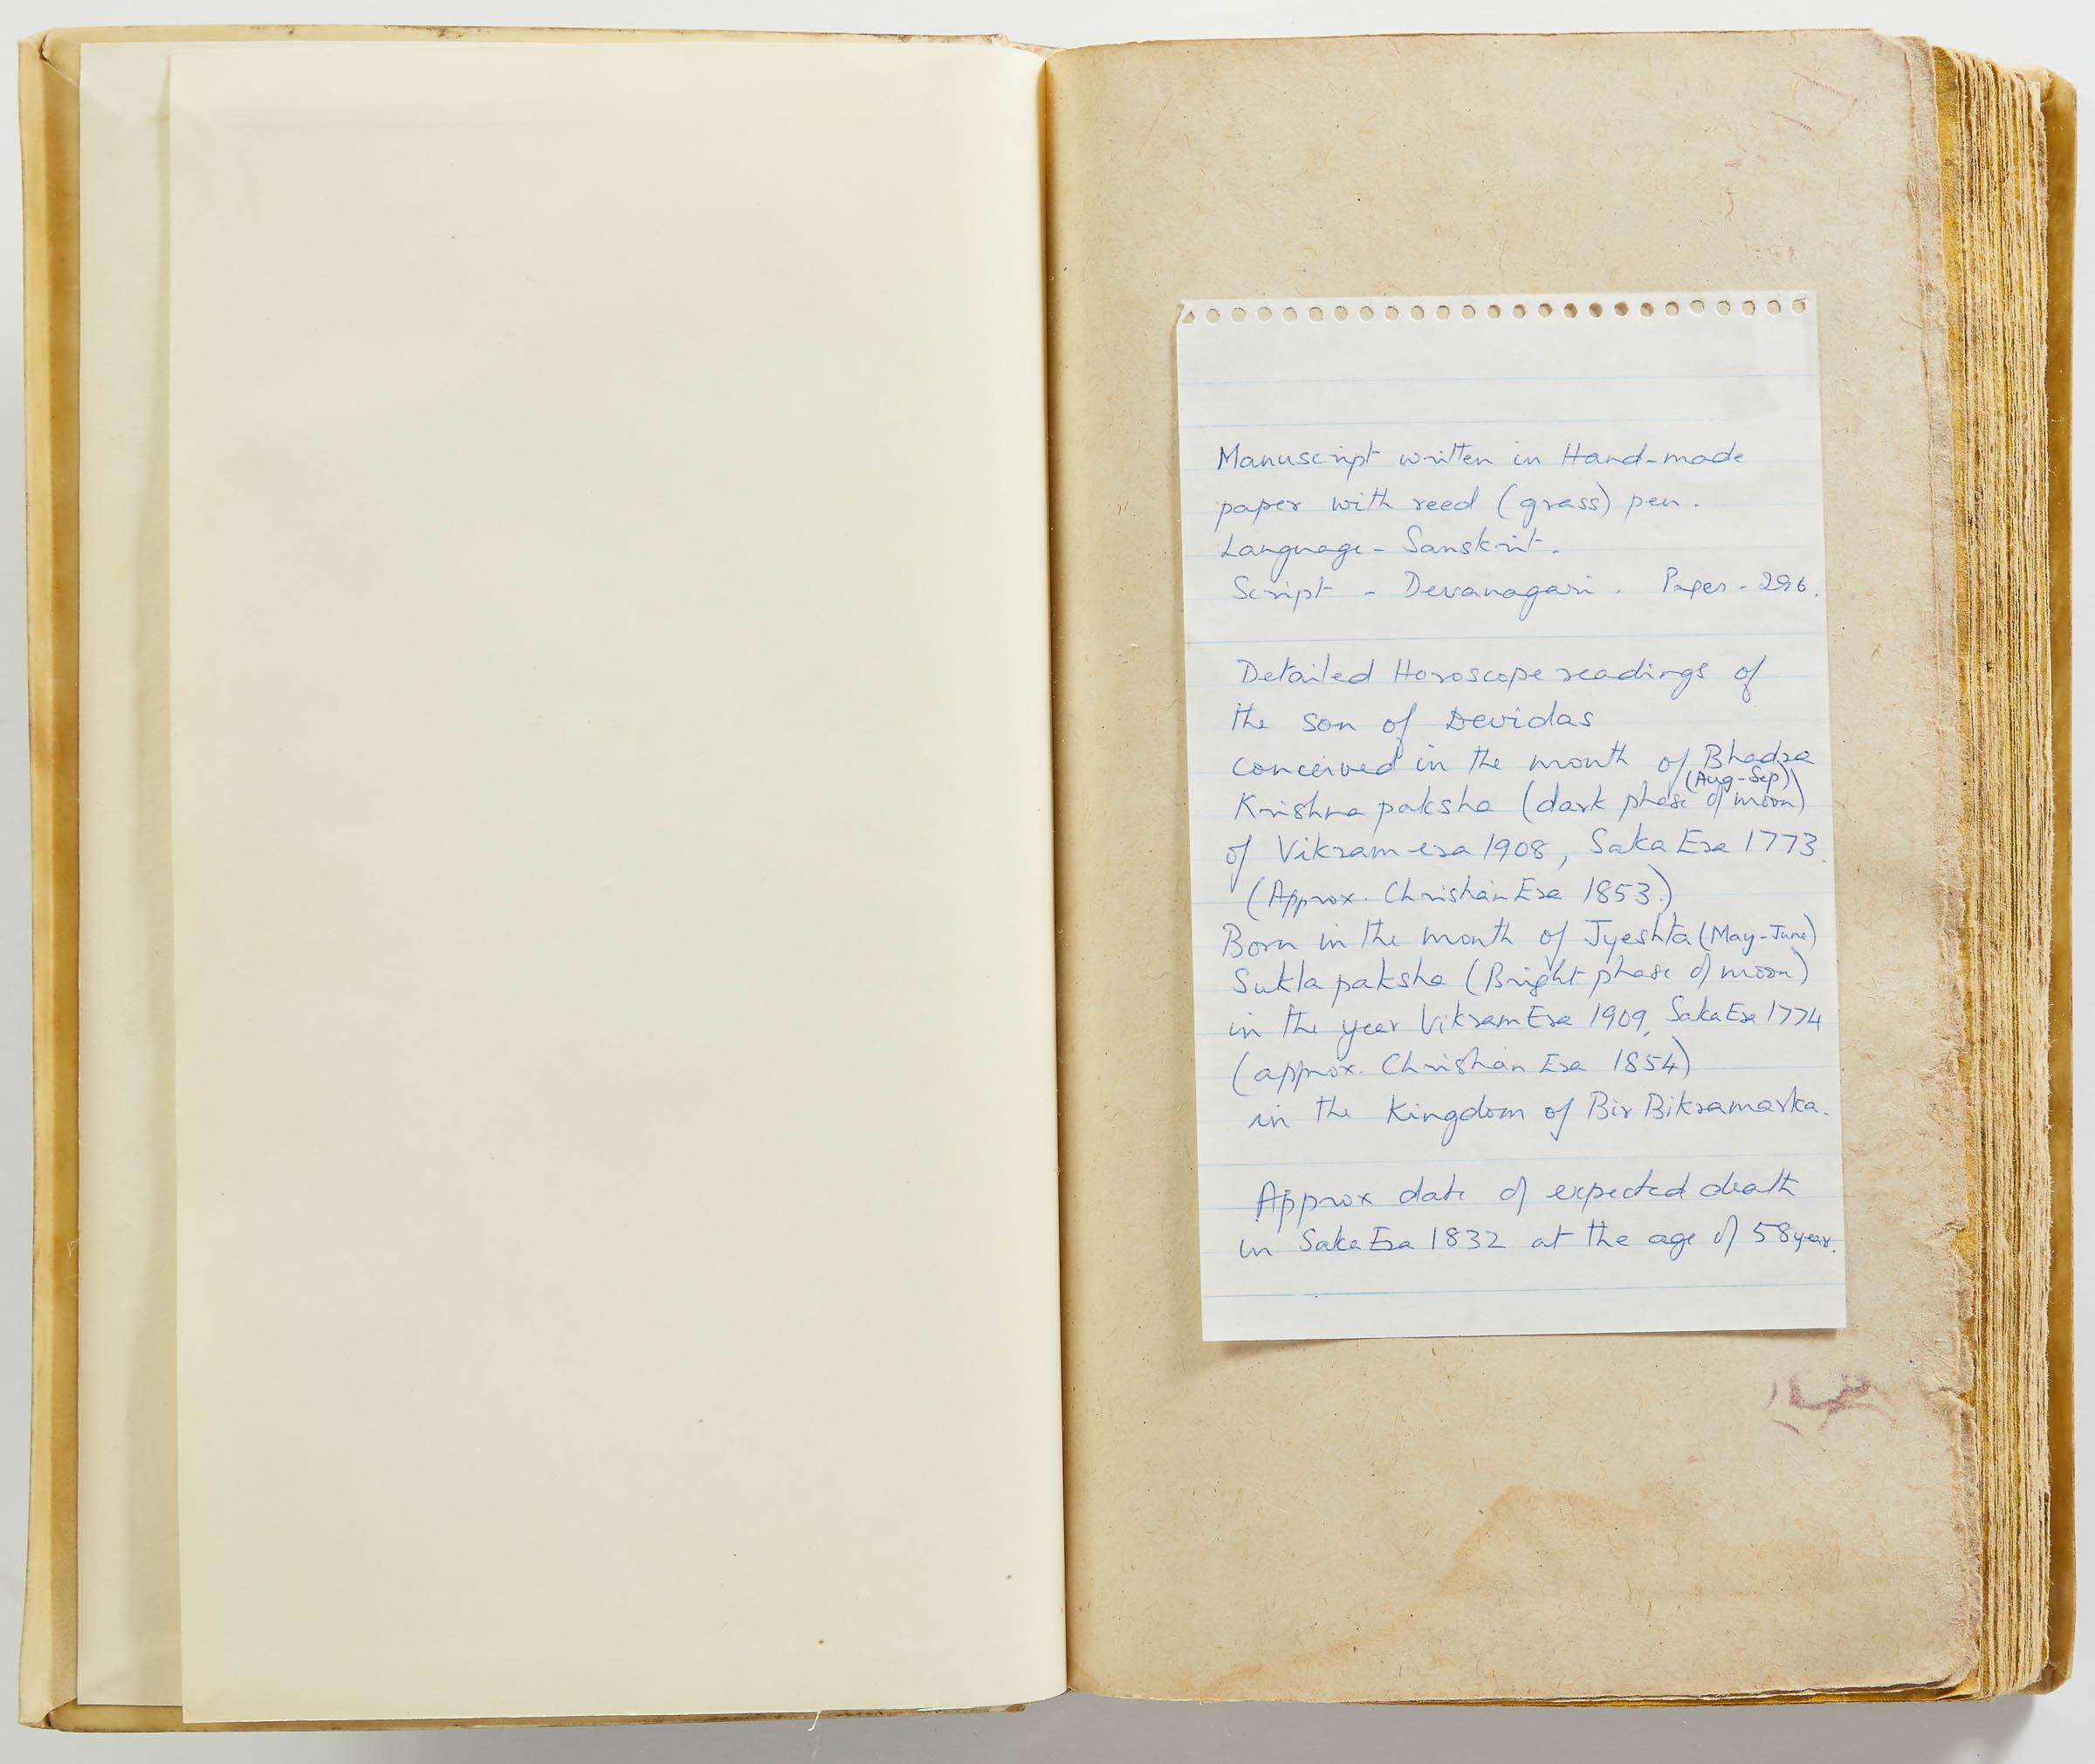 Manuscript written in Hand-made
paper with reed (grass) pen.
Language - Sanskrit.
Script - Devanagari. Pages - 296.
Detailed Horoscope readings of
the son of Devidas
conceived in the month of Bhadra
(Aug-Sep)
Krishna paksha (dark phase of moon)
of Vikram era 1908, Saka Era 1773.
(Approx. Christian Era 1853.)
Born in the month of Jyeshta (May-June)
Sukla paksha (Bright phase of moon)
in the year Vikram Era 1909, Saka Era 1774
(approx. Christian Era 1854)
in the Kingdom of Bir Bikramarka.
Approx date of expected death
in Saka Era 1832 at the age of 58 year.